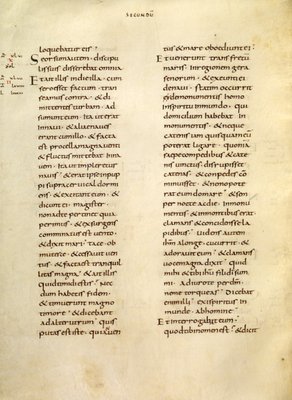 SECUNDU
loquebatur eis;
Seorsum autem discipu
lis suis disserebat omnia
Et ait illis in die illa cum
sero esset factum tran
seamus contra &di
mittentes turbam ad
sumunt eum ita ut erat
in naui & aliae naues
erant cum illo & facta
est procella magna uenti
& fluctus mittebat in na
uem ita ut impleretur
nauis & erat ipse in pup
pi supra ceruical dormi
ens & excitant eum &
dicunt ei magister
non ad te pertinet quia
perimus & exsurgens
comminatus est uento
& dixit mari tace ob
mutesce & cessauit uen
tus & facta est tranquil
litas magna & ait illis
quid timidi estis nec
dum habetis fidem
& timuerunt magno
timore & dicebant
ad alterutrum quis
putas est iste quia uen
tus & mare oboediunt ei
Et uenerunt trans fretu
maris in regionem gera
senorum & exeunti ei
de naui statim occurrit
ei de monumentis homo
in spiritu inmundo qui
domicilium habebat in
monumentis & neque
catenis iam quisquam eu
poterat ligare quoniam
saepe compedibus & cate
nis uinctus disrupisset
catenas & compedes co
minuisset & nemo pote
rat eum domare & sem
per nocte ac die in monu
mentis & in montibus erat
clamans & concidens se la
pidibus uidens autem
ihm a longe cucurrit & ad
orauit eum & clamans
uoce magna dixit quid
mihi & tibi ihu fili di sum
mi adiuro te per dm
ne me torqueas dicebat
enim illi exi spiritus in
munde ab homine
Et interrogabat eum
quod tibi nomen est & dicit